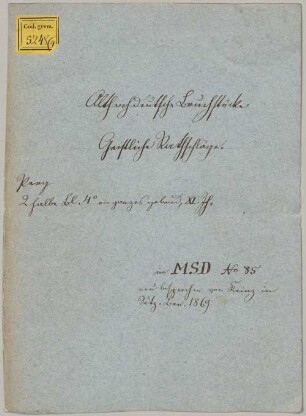 Cod. germ.
5248/6
Althochdeutsche Bruchstücke
Geistliche Rathschläge.
Perg
2 halbe Bl. 4° ein ganzes gebend, XI. Jh.
in MSD No 85
neu besprochen von Keinz in
Sitz. Ber. 1869